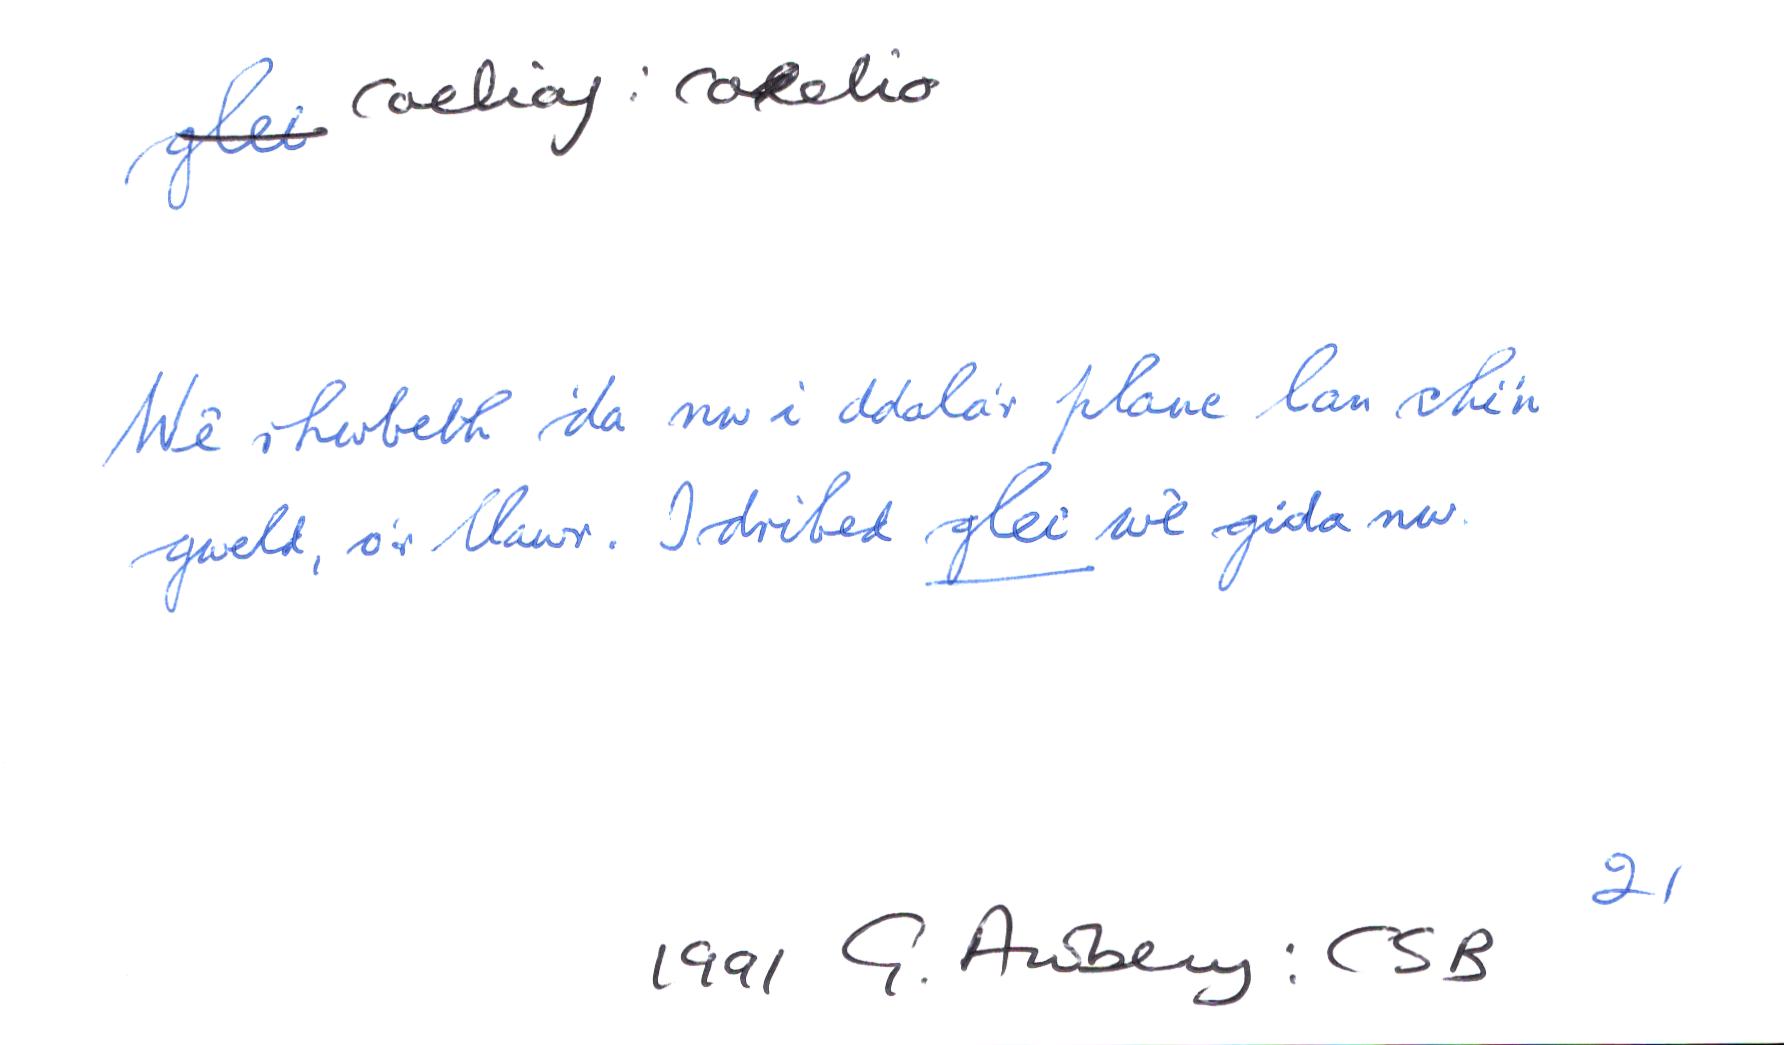 glei coeliaf : coelio
Wê rhwbeth 'da nw i ddala'r plane lan chi'n
gweld, o'r llawr. I dribed glei wê gida nw.
21
1991 G. Awbery : CSB